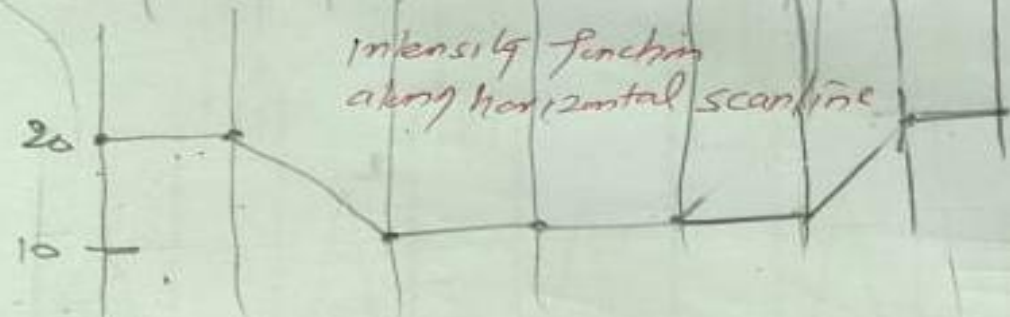 intensity function
along horizontal scanline
20
10